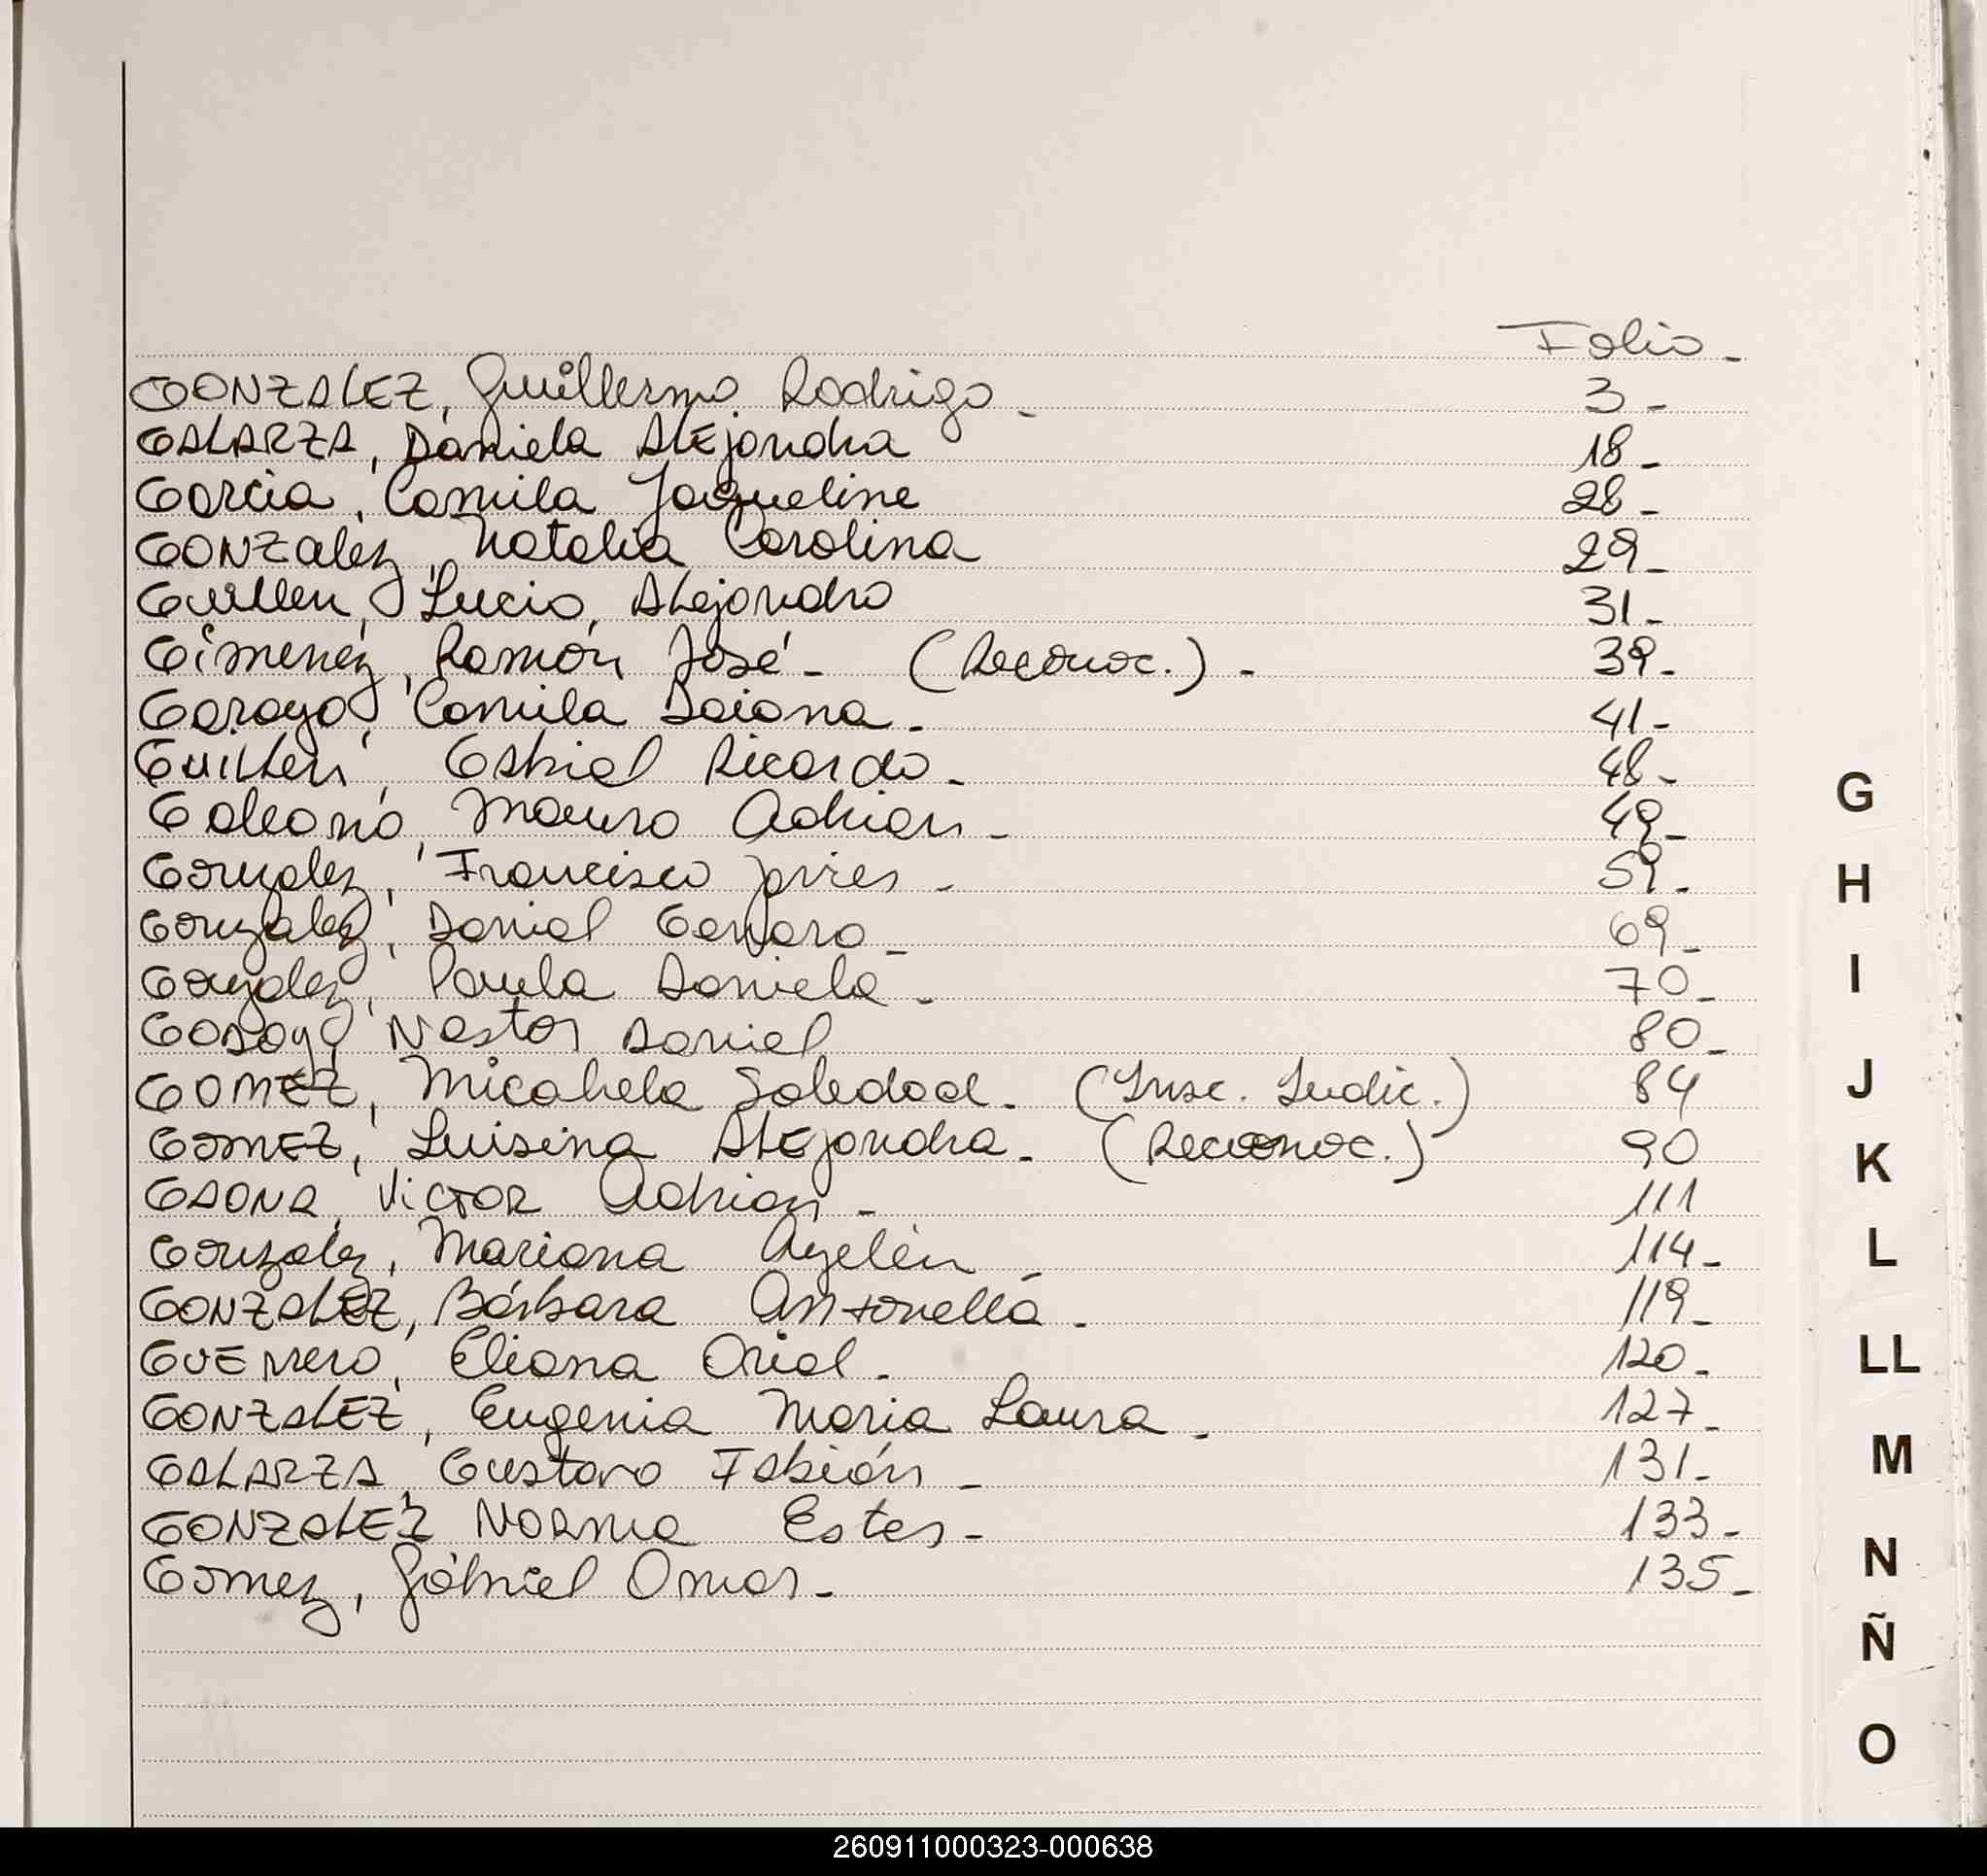 Folio -
GONZALEZ, Guillermo Rodrigo - 3 -
GALARZA, Daniela Alejandra 18 -
Garcia, Camila Jaqueline 28 -
GONZalez, Natalia Carolina 29 -
Guillen, Lucio, Alejandro 31 -
Gimenez, Ramón José - (Reconoc.) - 39 -
Garayo, Camila Daiana - 41 -
Guillen, Gabriel Ricardo - 48 -
Galeano, Mauro Adrian - 49 -
Gonzalez, Francisco Javier - 59 -
Gonzalez, Daniel Genaro - 69 -
Gonzalez, Paula Daniela - 70 -
Godoy, Nestor Daniel 80 -
GOMEZ, Micahela Soledad - (Insc. Judic.) 84
GOMEZ, Luisina Alejandra - (Reconoc.) 90
GAONA, Victor Adrian - 111
Gonzalez, Mariana Ayelén - 114 -
GONZALEZ, Bárbara Antonella - 119 -
GUErrero, Eliana Oriel - 120 -
GONZALEZ, Eugenia Maria Laura - 127 -
GALARZA, Gustavo Fabián - 131 -
GONZALEZ Norma Ester - 133 -
Gomez, Gabriel Omar - 135 -
G
H
I
J
K
L
LL
M
N
Ñ
O
260911000323-000638